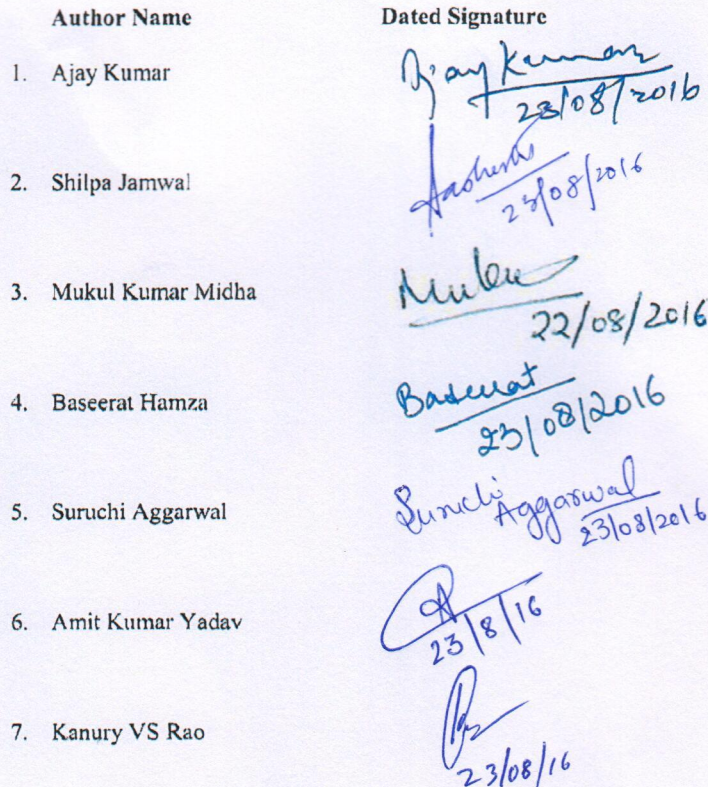 Author Name Dated Signature
1. Ajay Kumar Ajay Kumar
23/08/2016
2. Shilpa Jamwal
23/08/2016
3. Mukul Kumar Midha Mukul
22/08/2016
4. Baseerat Hamza Baseerat
23/08/2016
5. Suruchi Aggarwal Suruchi Aggarwal
23/08/2016
6. Amit Kumar Yadav
23/8/16
7. Kanury VS Rao
23/08/16